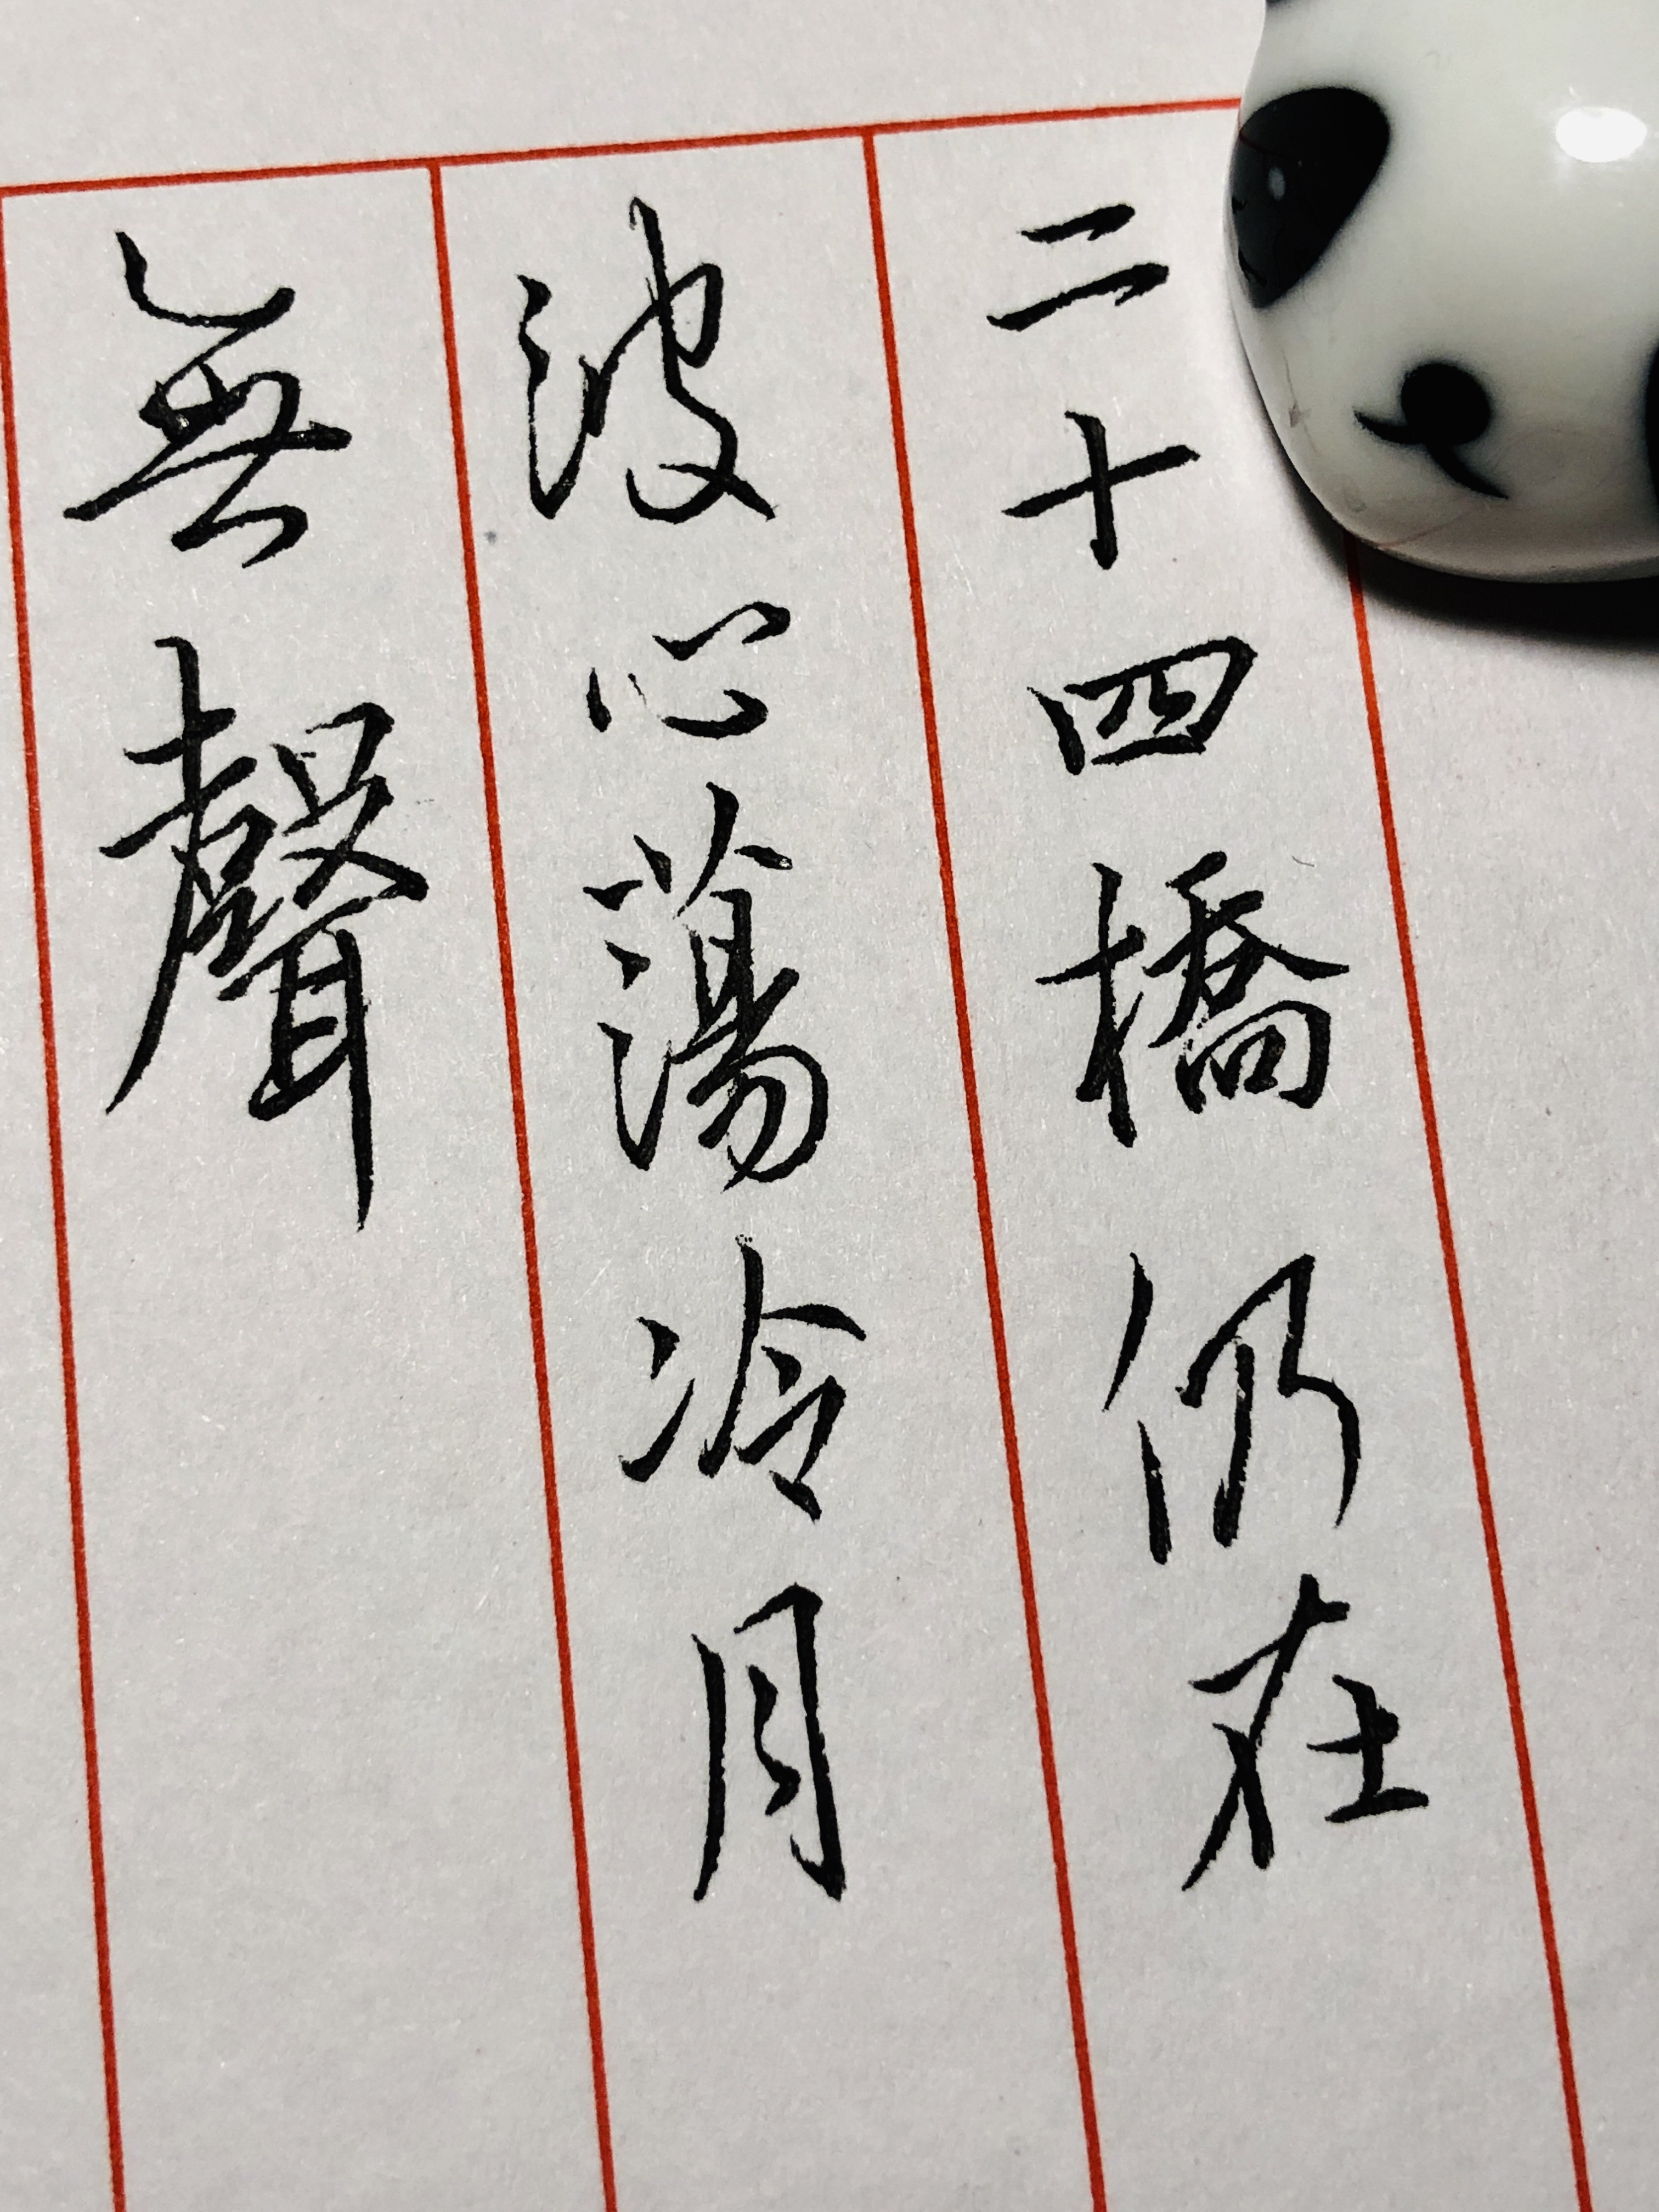 二十四橋仍在
波心蕩冷月
無聲